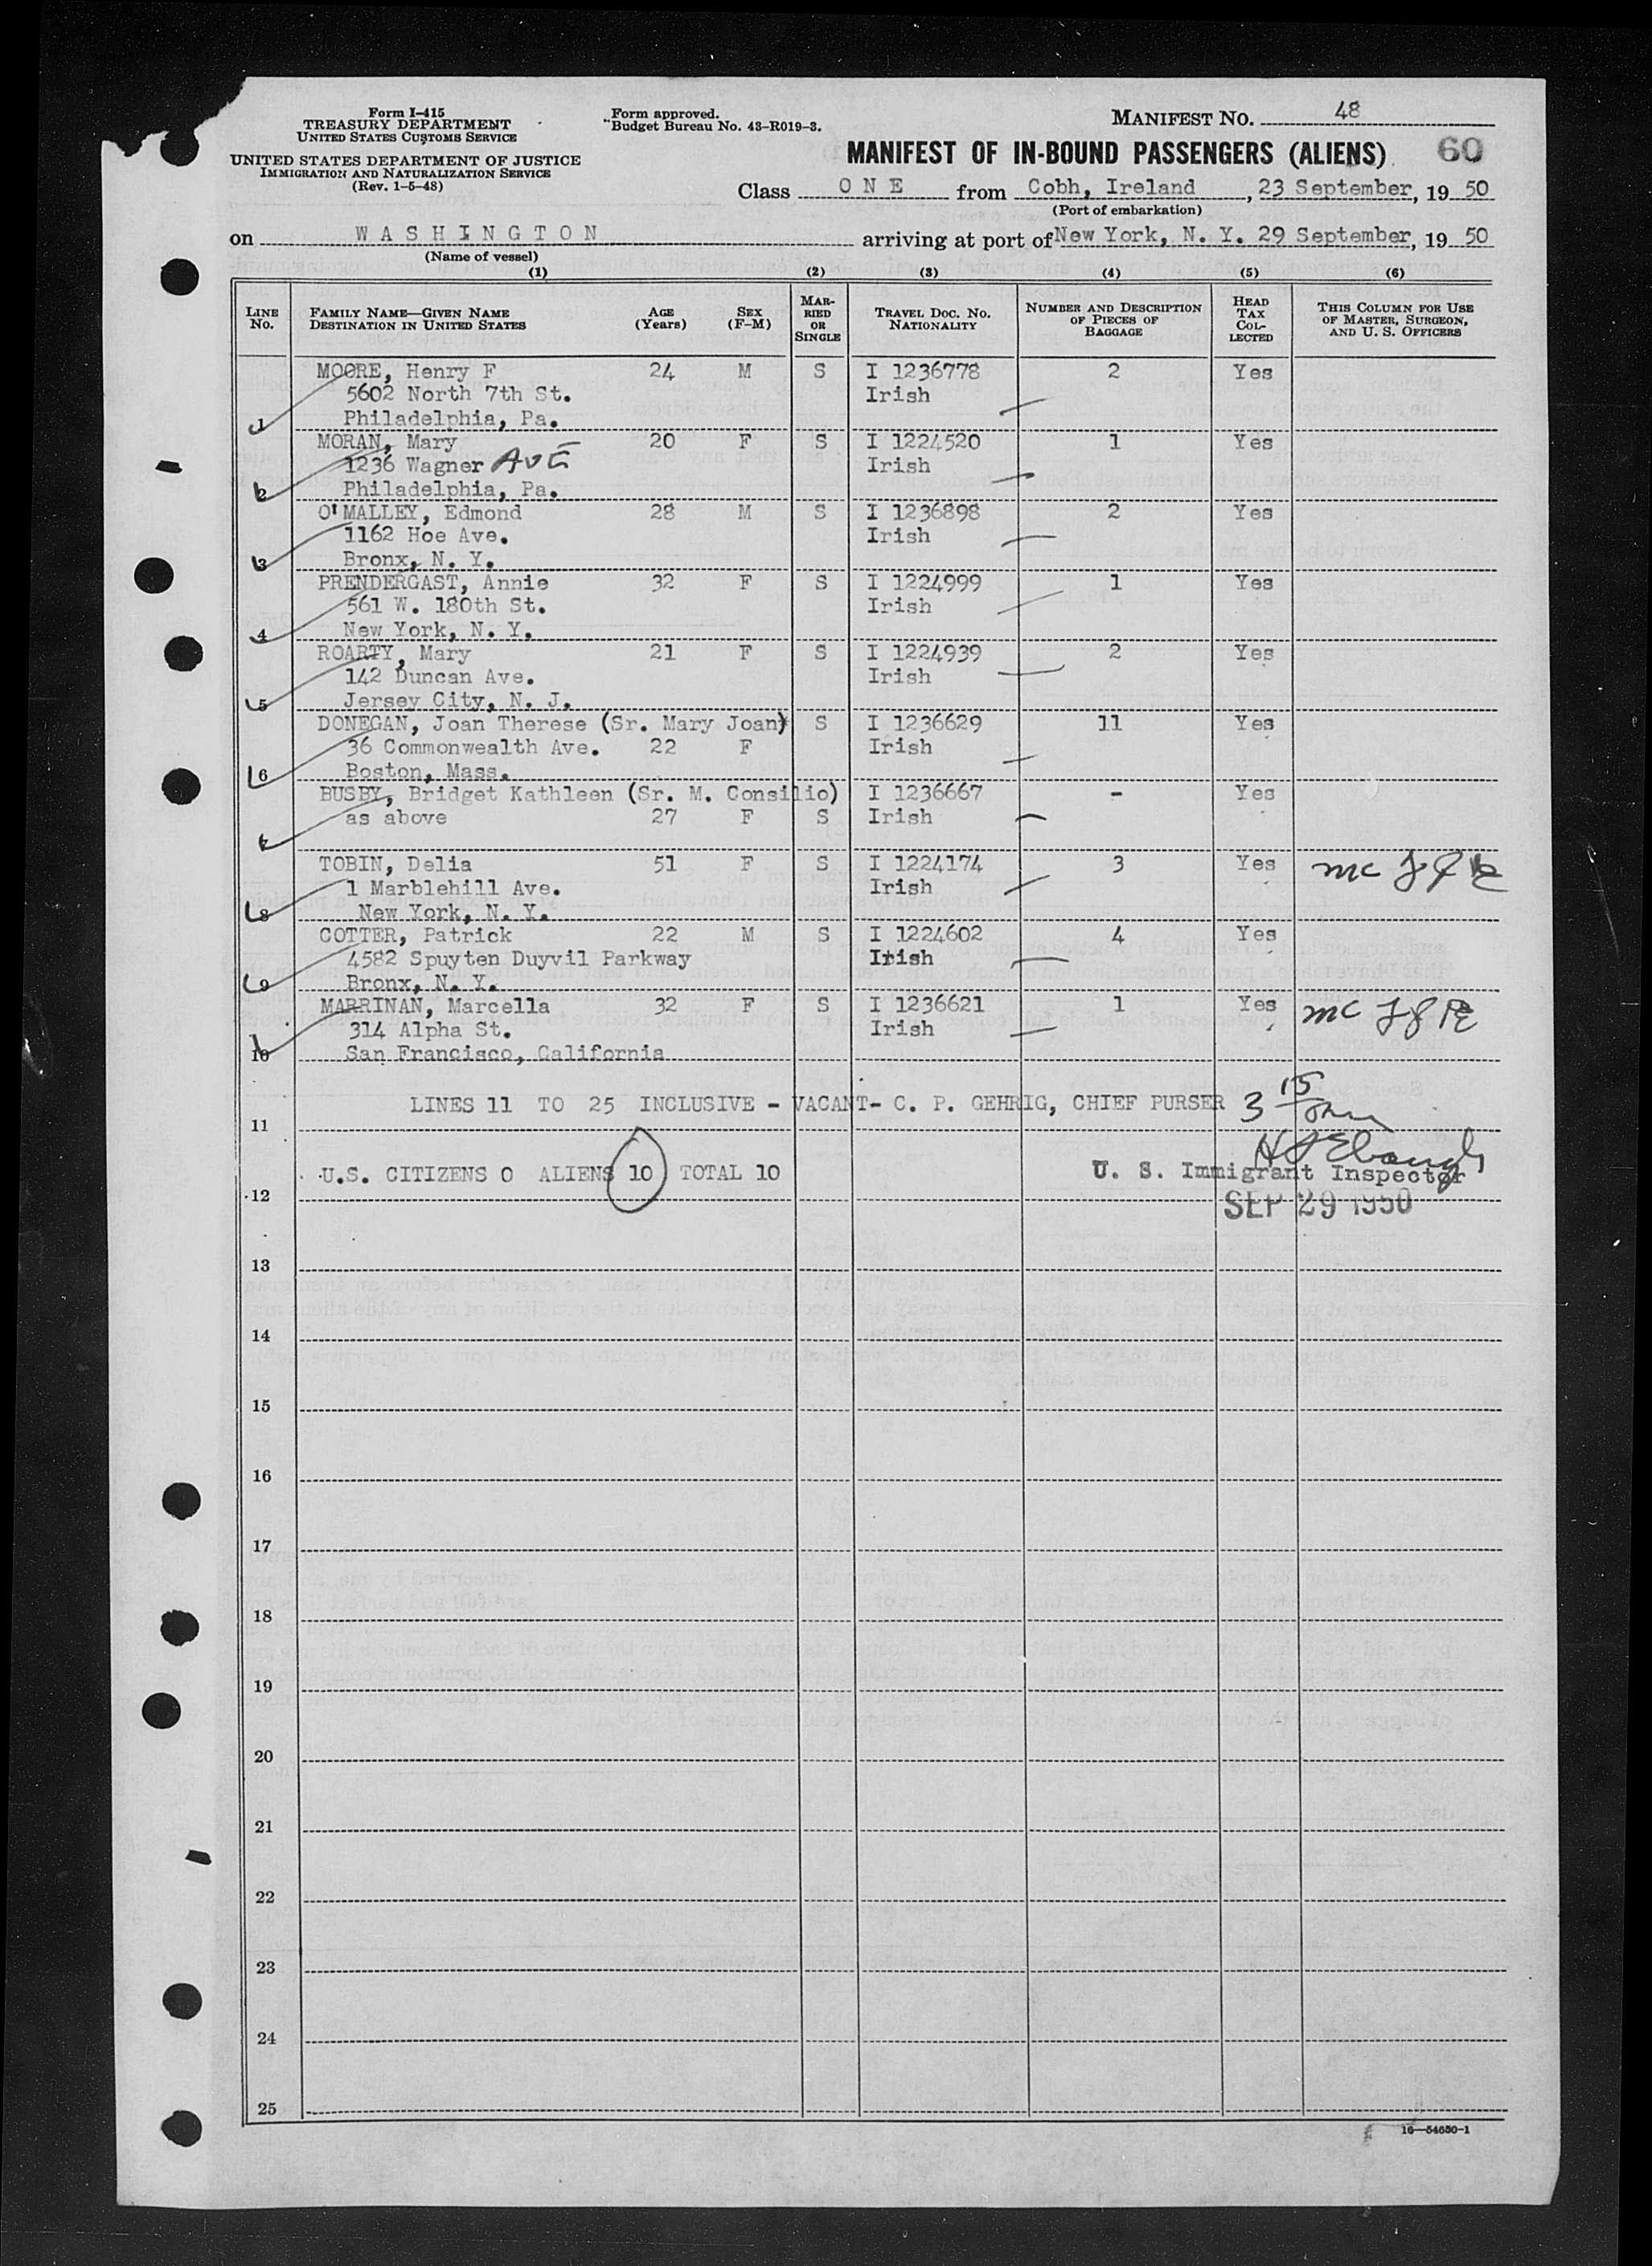 Form I-415
TREASURY DEPARTMENT
UNITED STATES CUSTOMS SERVICE
UNITED STATES DEPARTMENT OF JUSTICE
IMMIGRATION AND NATURALIZATION SERVICE
(Rev. 1-5-48)
Form approved.
Budget Bureau No. 43-R019-3.
MANIFEST NO. 48
MANIFEST OF IN-BOUND PASSENGERS (ALIENS) 60
Class ONE from Cobh, Ireland, 23 September, 19 50
(Port of embarkation)
on WASHINGTON arriving at port of New York, N. Y. 29 September, 19 50
(Name of vessel)
(1) (2) (3) (4) (5) (6)
LINE No. FAMILY NAME—GIVEN NAME DESTINATION IN UNITED STATES AGE (Years) SEX (F-M) MARRIED OR SINGLE TRAVEL DOC. NO. NATIONALITY NUMBER AND DESCRIPTION OF PIECES OF BAGGAGE HEAD TAX COLLECTED THIS COLUMN FOR USE OF MASTER, SURGEON, AND U. S. OFFICERS
MOORE, Henry F 24 M S I 1236778 2 Yes
5602 North 7th St. Irish
1 Philadelphia, Pa.
MORAN, Mary 20 F S I 1224520 1 Yes
1236 Wagner AVE Irish
2 Philadelphia, Pa.
O'MALLEY, Edmond 28 M S I 1236898 2 Yes
1162 Hoe Ave. Irish
3 Bronx, N. Y.
PRENDERGAST, Annie 32 F S I 1224999 1 Yes
561 W. 180th St. Irish
4 New York, N. Y.
ROARTY, Mary 21 F S I 1224939 2 Yes
142 Duncan Ave. Irish
5 Jersey City, N. J.
DONEGAN, Joan Therese (Sr. Mary Joan) S I 1236629 11 Yes
36 Commonwealth Ave. 22 F Irish
6 Boston, Mass.
BUSBY, Bridget Kathleen (Sr. M. Consilio) I 1236667 - Yes
as above 27 F S Irish
7
TOBIN, Delia 51 F S I 1224174 3 Yes
1 Marblehill Ave. Irish
8 New York, N. Y.
COTTER, Patrick 22 M S I 1224602 4 Yes
4582 Spuyten Duyvil Parkway Irish
9 Bronx, N. Y.
MARRINAN, Marcella 32 F S I 1236621 1 Yes
314 Alpha St. Irish
10 San Francisco, California
LINES 11 TO 25 INCLUSIVE - VACANT- C. P. GEHRIG, CHIEF PURSER
11
U.S. CITIZENS 0 ALIENS 10 TOTAL 10 U. S. Immigrant Inspector
12 SEP 29 1950
13
14
15
16
17
18
19
20
21
22
23
24
25
16—54650-1